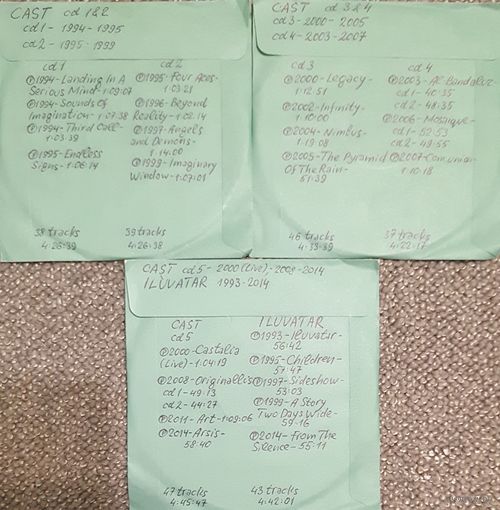 CAST cd 1&2
cd1 - 1994-1995
cd2 - 1995-1999
cd1
℗1994-Landing In A
Serious Mind-1:09:07
℗1994-Sounds Of
Imagination-1:07:38
℗1994-Third Call-
1:03:39
℗1995-Endless
Signs-1:06:14
38 tracks
4:26:39
cd2
℗1995-Four Aces-
1:03:21
℗1996-Beyond
Reality-1:02:14
℗1997-Angels
and Demons-
1:14:00
℗1999-Imaginary
Window-1:07:01
39 tracks
4:26:38
CAST cd 3&4
cd3-2000-2005
cd4-2003-2007
cd3
℗2000-Legacy-
1:12:51
℗2002-Infinity-
1:10:00
℗2004-Nimbus-
1:19:08
℗2005-The Pyramid
Of The Rain-
51:39
46 tracks
4:33:39
cd4
℗2003-Al-Bandaluz
cd1-40:35
cd2-48:35
℗2006-Mosaique-
cd1-52:53
cd2-49:55
℗2007-Comunion-
1:10:18
37 tracks
4:22:17
CAST cd5-2000(Live),2008-2014
ILUVATAR 1993-2014
CAST
cd5
℗2000-Castalia
(Live)-1:04:19
℗2008-Originallis
cd1-49:13
cd2-44:27
℗2011-Art-1:09:06
℗2014-Arsis-
58:40
47 tracks
4:45:47
ILUVATAR
℗1993-Iluvatar-
56:42
℗1995-Children-
57:47
℗1997-Sideshow-
53:03
℗1999-A Story
Two Days Wide-
59:16
℗2014-From The
Silence-55:11
43 tracks
4:42:01